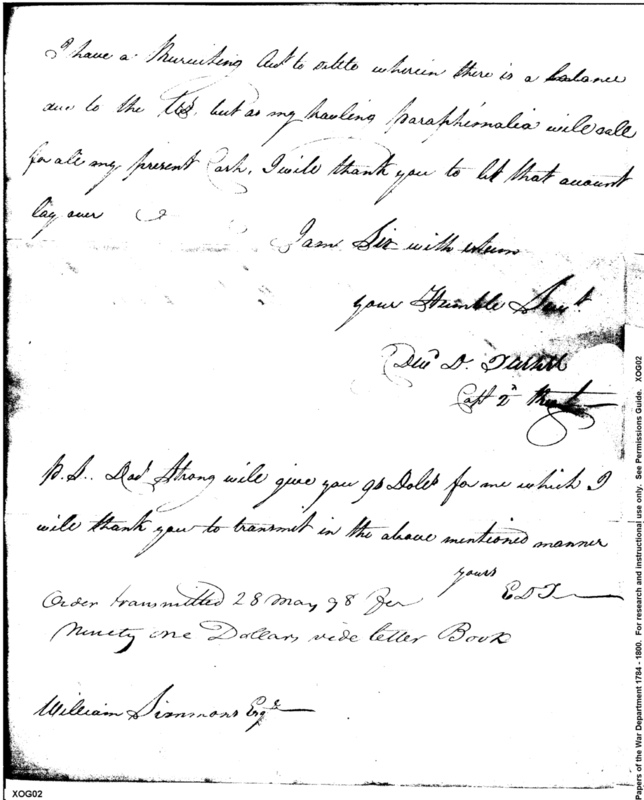 I have a Recruiting Acct to settle wherein there is a balance
due to the US. but as my hauling paraphernalia will call
for all my present Cash, I will thank you to let that account
lay over
I am Sir with esteem
your Humble Servt.
D. 
Capt 2d Regt
P.S.. Strong will give you Dolls for me which I
will thank you to transmit in the above mentioned manner
yours
E D T
Order transmitted 28 May 98 for
Ninety one Dollars vide letter Book
William Simmons Esqr
XOG02
Papers of the War Department 1784 - 1800. For research and instructional use only. See Permissions Guide. XOG02